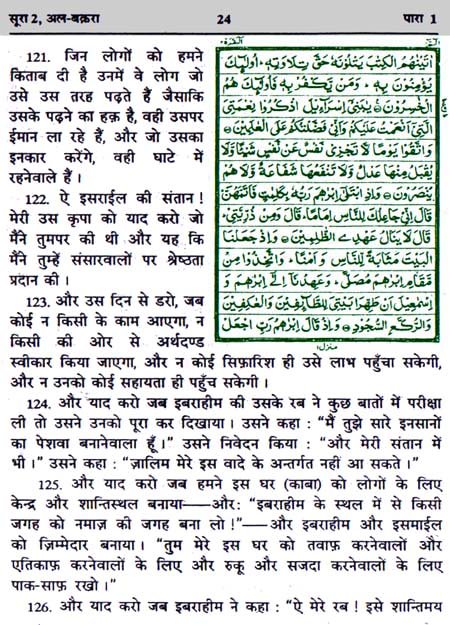 सूरा 2, अल-बक़रा
24
पारा 1
121. जिन लोगों को हमने
किताब दी है उनमें वे लोग जो
उसे उस तरह पढ़ते हैं जैसाकि
उसके पढ़ने का हक़ है, वही उसपर
ईमान ला रहे हैं, और जो उसका
इनकार करेंगे, वही घाटे में
रहनेवाले हैं।
122. ऐ इसराईल की संतान!
मेरी उस कृपा को याद करो जो
मैंने तुमपर की थी और यह कि
मैंने तुम्हें संसारवालों पर श्रेष्ठता
प्रदान की।
123. और उस दिन से डरो, जब
कोई न किसी के काम आएगा, न
किसी की ओर से अर्थदण्ड
اٰتَيْنٰهُمُ الْكِتٰبَ يَتْلُوْنَهٗ حَقَّ تِلَاوَتِهٖ ؕ اُولٰٓئِكَ
يُؤْمِنُوْنَ بِهٖ ؕ وَمَنْ يَّكْفُرْ بِهٖ فَاُولٰٓئِكَ هُمُ
الْخٰسِرُوْنَ ۞ يٰبَنِيْٓ اِسْرَآءِيْلَ اذْكُرُوْا نِعْمَتِيَ
الَّتِيْٓ اَنْعَمْتُ عَلَيْكُمْ وَاَنِّيْ فَضَّلْتُكُمْ عَلَى الْعٰلَمِيْنَ ۞
وَاتَّقُوْا يَوْمًا لَّا تَجْزِيْ نَفْسٌ عَنْ نَّفْسٍ شَيْـًٔا وَّلَا
يُقْبَلُ مِنْهَا عَدْلٌ وَّلَا تَنْفَعُهَا شَفَاعَةٌ وَّلَا هُمْ
يُنْصَرُوْنَ ۞ وَاِذِ ابْتَلٰٓى اِبْرٰهٖمَ رَبُّهٗ بِكَلِمٰتٍ فَاَتَمَّهُنَّ ؕ
قَالَ اِنِّيْ جَاعِلُكَ لِلنَّاسِ اِمَامًا ؕ قَالَ وَمِنْ ذُرِّيَّتِيْ ؕ
قَالَ لَا يَنَالُ عَهْدِي الظّٰلِمِيْنَ ۞ وَاِذْ جَعَلْنَا
الْبَيْتَ مَثَابَةً لِّلنَّاسِ وَاَمْنًا ؕ وَاتَّخِذُوْا مِنْ
مَّقَامِ اِبْرٰهٖمَ مُصَلًّى ؕ وَعَهِدْنَآ اِلٰٓى اِبْرٰهٖمَ وَ
اِسْمٰعِيْلَ اَنْ طَهِّرَا بَيْتِيَ لِلطَّآئِفِيْنَ وَالْعٰكِفِيْنَ
وَالرُّكَّعِ السُّجُوْدِ ۞ وَاِذْ قَالَ اِبْرٰهٖمُ رَبِّ اجْعَلْ
منزل
स्वीकार किया जाएगा, और न कोई सिफ़ारिश ही उसे लाभ पहुँचा सकेगी,
और न उनको कोई सहायता ही पहुँच सकेगी।
124. और याद करो जब इबराहीम की उसके रब ने कुछ बातों में परीक्षा
ली तो उसने उनको पूरा कर दिखाया। उसने कहा : “मैं तुझे सारे इनसानों
का पेशवा बनानेवाला हूँ।” उसने निवेदन किया : “और मेरी संतान में
भी।” उसने कहा : “ज़ालिम मेरे इस वादे के अन्तर्गत नहीं आ सकते।”
125. और याद करो जब हमने इस घर (काबा) को लोगों के लिए
केन्द्र और शान्तिस्थल बनाया——और: “इबराहीम के स्थल में से किसी
जगह को नमाज़ की जगह बना लो!”—और इबराहीम और इसमाईल
को ज़िम्मेदार बनाया। “तुम मेरे इस घर को तवाफ़ करनेवालों और
एतिकाफ़ करनेवालों के लिए और रुकू और सजदा करनेवालों के लिए
पाक-साफ़ रखो।”
126. और याद करो जब इबराहीम ने कहा : “ऐ मेरे रब! इसे शान्तिमय